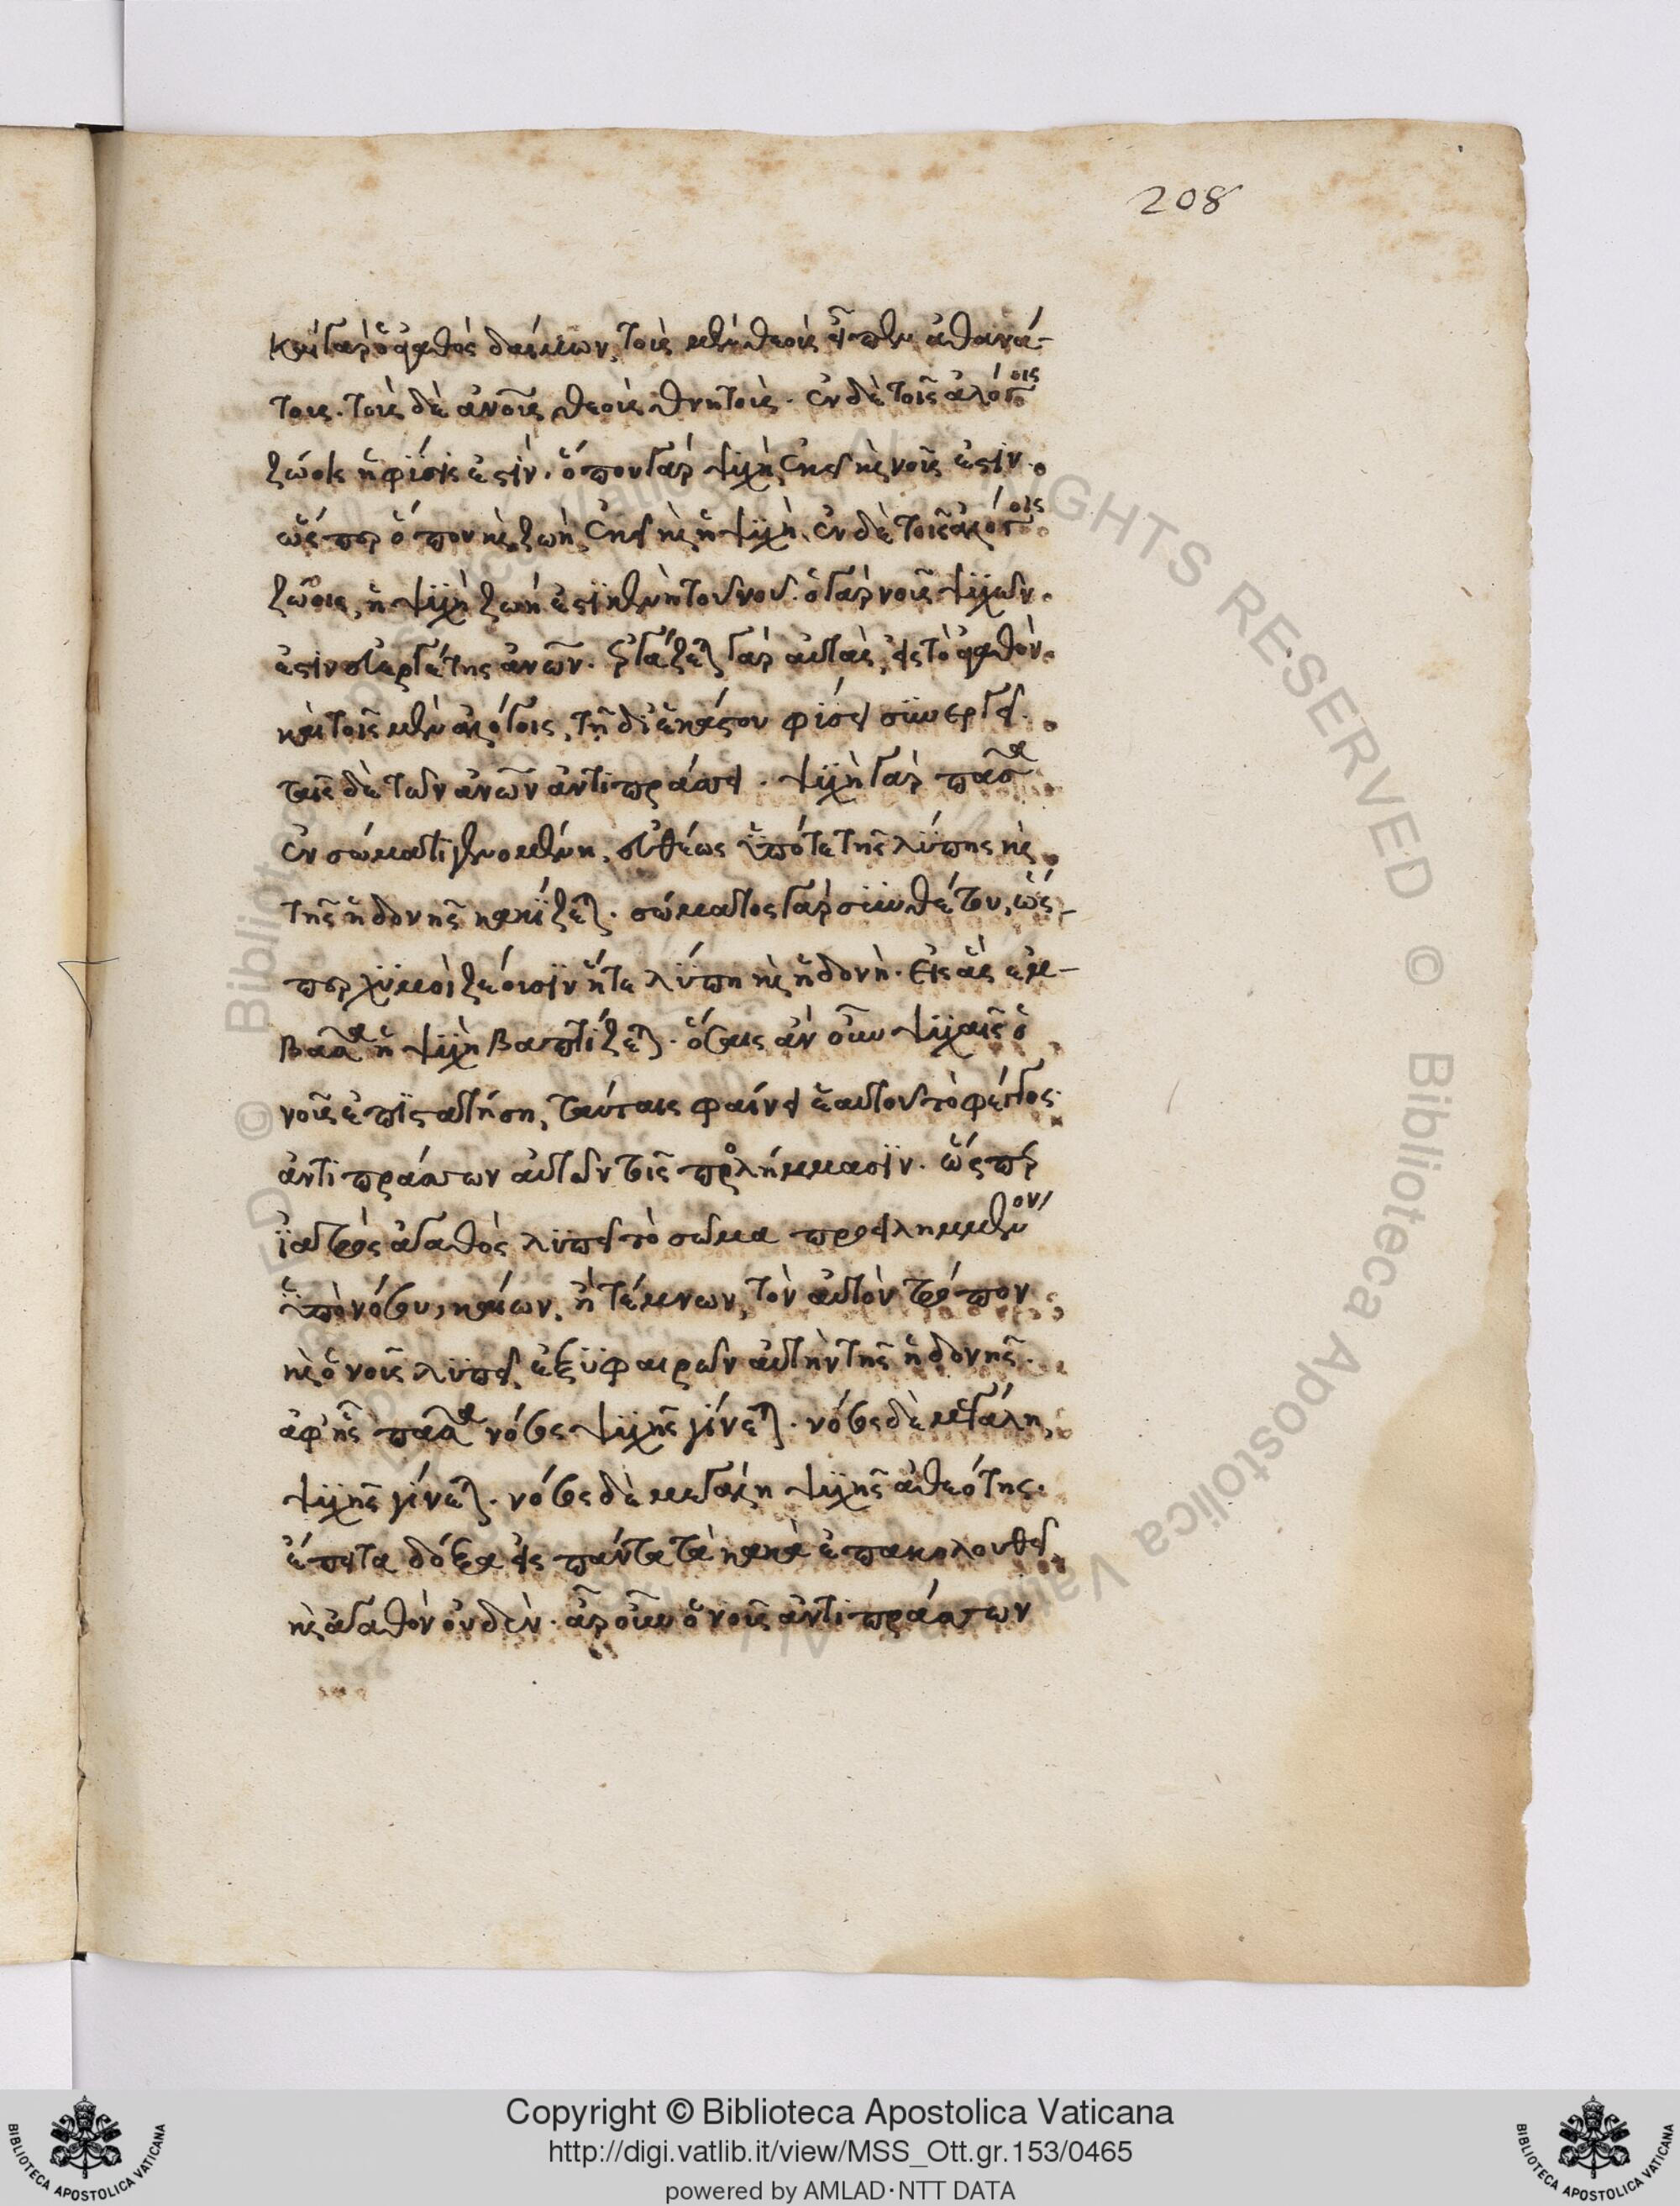 208
καὶ γὰρ ὁ ἀγαθὸς δαίμων, τοὺς μὲν θεοὺς εἶπεν ἀθανά-
τους. τοὺς δὲ ἀνους θεοὺς θνητούς. ἐν δὲ τοῖς ἀλόγοις
ζώοις ἡ φύσις ἐστίν. ὅπου γὰρ ψυχὴ, ἐκεῖ καὶ νοῦς ἐστιν.
ὥσπερ ὅπου καὶ ζωὴ, ἐκεῖ καὶ ἡ ψυχή. ἐν δὲ τοῖς ἀλόγοις
ζώοις, ἡ ψυχὴ ζωή ἐστι κενὴ τοῦ νοῦ. ὁ γὰρ νοῦς ψυχῶν
ἐστιν εὐεργέτης ἀνων. ἐργάζεται γὰρ αὐτὰς, εἰς τὸ ἀγαθόν.
καὶ τοῖς μὲν ἀλόγοις, τῇ δι' ἑκάστου φύσει συνεργεῖ.
ταῖς δὲ τῶν ἀνων ἀντιπράττει. ψυχὴ γὰρ πᾶσα
ἐν σώματι γενομένη, εὐθέως ὑπό τε τῆς λύπης καὶ
τῆς ἡδονῆς κακίζεται. σώματος γὰρ συνθέτου, ὥσ-
περ χυμοὶ ζέουσιν ἥ τε λύπη καὶ ἡ δονή. εἰς ἃς ἐμ-
βᾶσα ἡ ψυχὴ βαπτίζεται. ὅσαις ἂν οὖν ψυχαῖς ὁ
νοῦς ἐπιστατήση, ταύταις φαίνει ἑαυτοῦ τὸ φέγγος
ἀντιπράττων αὐτῶν τοῖς προλήμμασιν. ὥσπερ
ἰατρὸς ἀγαθὸς λυπεῖ τὸ σῶμα προειλημμένον
ὑπὸ νόσου, καίων, ἢ τέμνων, τὸν αὐτὸν τρόπον
καὶ ὁ νοῦς λυπεῖ, ἐξυφαιρῶν αὐτὴν τῆς ἡδονῆς.
ἀφ' ἧς πᾶσα νόσος ψυχῆς γίνεται. νόσος δὲ μεγάλη
ψυχῆς γίνεται. νόσος δὲ μεγάλη ψυχῆς ἀθεότης.
ἔπειτα δόξα εἰς πάντα τὰ κακὰ ἐπακολουθεῖ
καὶ ἀγαθὸν οὐδέν. ἆρ οὖν ὁ νοῦς ἀντιπράττων
© Biblioteca Apostolica Vaticana
ALL RIGHTS RESERVED
Copyright © Biblioteca Apostolica Vaticana
http://digi.vatlib.it/view/MSS_Ott.gr.153/0465
powered by AMLAD·NTT DATA
BIBLIOTECA APOSTOLICA VATICANA
BIBLIOTECA APOSTOLICA VATICANA